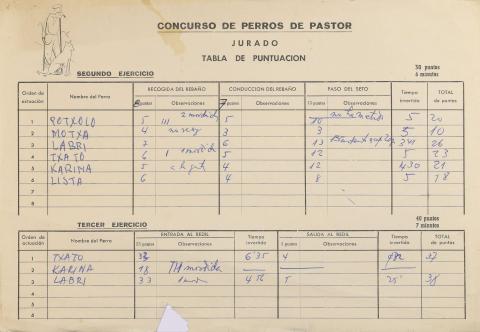 CONCURSO DE PERROS DE PASTOR
JURADO
TABLA DE PUNTUACION
SEGUNDO EJERCICIO
30 puntos
6 minutos
Orden de actuación Nombre del Perro RECOGIDA DEL REBAÑO CONDUCCION DEL REBAÑO PASO DEL SETO Tiempo invertido TOTAL de puntos
8 puntos Observaciones 7 puntos Observaciones 15 puntos Observaciones
1 POTXOLO 5 III 2 mordida 5 10 5 20
2 MOTXA 4 3 3 5 10
3 LABRI 7 6 13 26
4 TXATO 6 1 mordida 5 12 5 23
5 KARINA 5 4 12 4'30 21
6 LISTA 6 4 8 5 18
7
8
TERCER EJERCICIO
40 puntos
7 minutos
Orden de actuación Nombre del Perro ENTRADA AL REDIL Tiempo invertido SALIDA AL REDIL Tiempo invertido TOTAL de puntos
35 puntos Observaciones 5 puntos Observaciones
1 TXATO 6'35 4 37
2 KARINA 18 mordida
3 LABRI 33 5 38
4
5
6